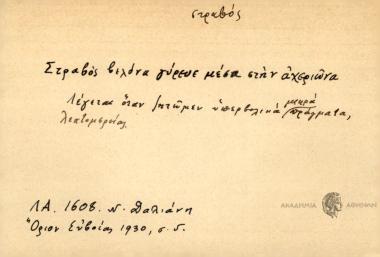 στραβός
Στραβὸς βελόνα γύρευε μέσα στὴν ἀχεριῶνα
Λέγεται ὅταν ζητῶμεν ὑπερβολικά μικρά πράγματα,
λεπτομερείας
Λ.Α. 1608. Ν. Δαλιάνη
Ὄριον Εὐβοίας 1930, σ. 5.
ΑΚΑΔΗΜΙΑ ΑΘΗΝΩΝ